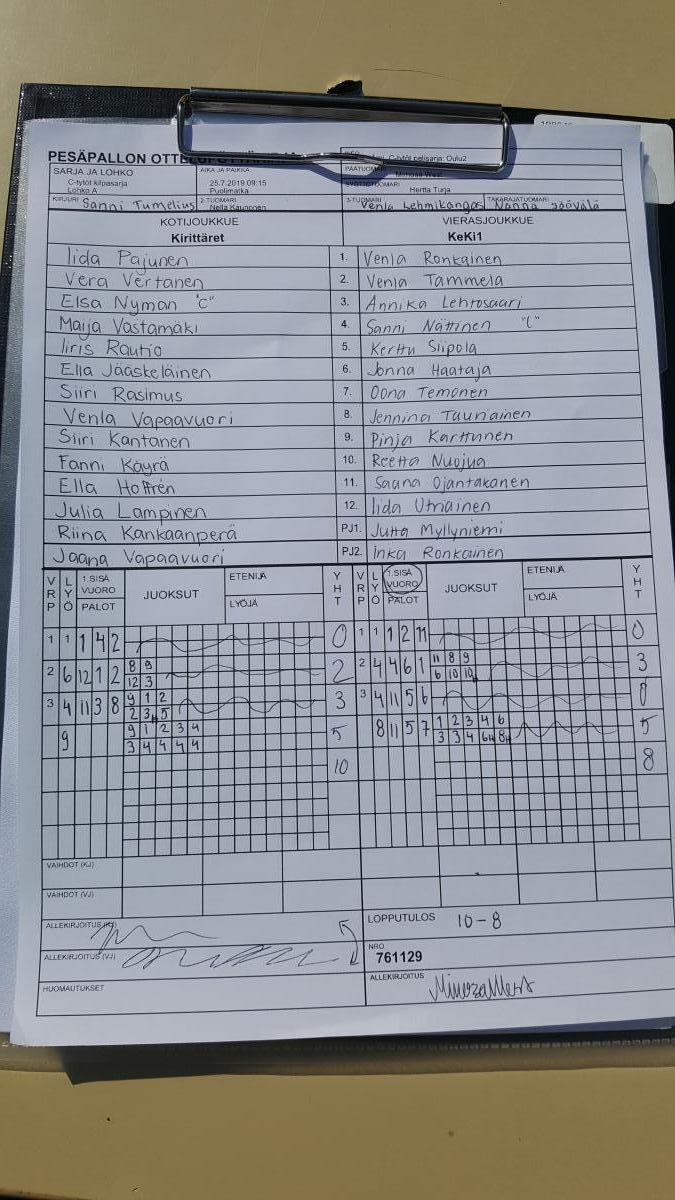 PESÄPALLON
C-tytöt pelisarja: Oulu2
SARJA JA LOHKO
C-tytöt kilpasarja
Lohko A
AIKA JA PAIKKA
25.7.2019 09:15
Puolimatka
PÄÄTUOMARI
Hertta Turja
KIRJURI Sanni Tumelius
2-TUOMARI
Nella Kauppinen
3-TUOMARI
Venla Lehmikangas
TAKARAJATUOMARI
Nanna Säävälä
KOTIJOUKKUE
Kirittäret
VIERASJOUKKUE
KeKi1
Iida Pajunen 1. Venla Ronkainen
Vera Vertanen 2. Venla Tammela
Elsa Nyman "C" 3. Annika Lehtosaari
Maija Vastamäki 4. Sanni Nättinen "C"
Iiris Rautio 5. Kerttu Siipola
Ella Jääskeläinen 6. Jonna Haataja
Siiri Rasimus 7. Oona Temonen
Venla Vapaavuori 8. Jennina Tauriainen
Siiri Kantanen 9. Pinja Karttunen
Fanni Käyrä 10. Reetta Nuojua
Ella Hoffrén 11. Saana Ojantakanen
Julia Lampinen 12. Iida Utriainen
Riina Kankaanperä PJ1. Jutta Myllyniemi
Jaana Vapaavuori PJ2. Inka Ronkainen
VRP LYÖ 1.SISÄ VUORO PALOT JUOKSUT ETENIJÄ LYÖJÄ YHT VRP LYÖ 1.SISÄ VUORO PALOT JUOKSUT ETENIJÄ LYÖJÄ YHT
1 1 1 4 2 0 1 1 1 2 11 0
8 9 11 8 9
2 6 12 1 2 2 2 4 4 6 1 3
12 3 6 10 10
9 1 2
3 4 11 3 8 3 3 4 11 5 6 0
2 3 5
9 1 2 3 4 1 2 3 4 6
9 5 8 11 5 7 5
3 4 4 4 4 3 3 4 6H 8H
10 8
VAIHDOT (KJ)
VAIHDOT (VJ)
ALLEKIRJOITUS (KJ)
LOPPUTULOS 10-8
ALLEKIRJOITUS (VJ)
NRO
761129
HUOMAUTUKSET
ALLEKIRJOITUS